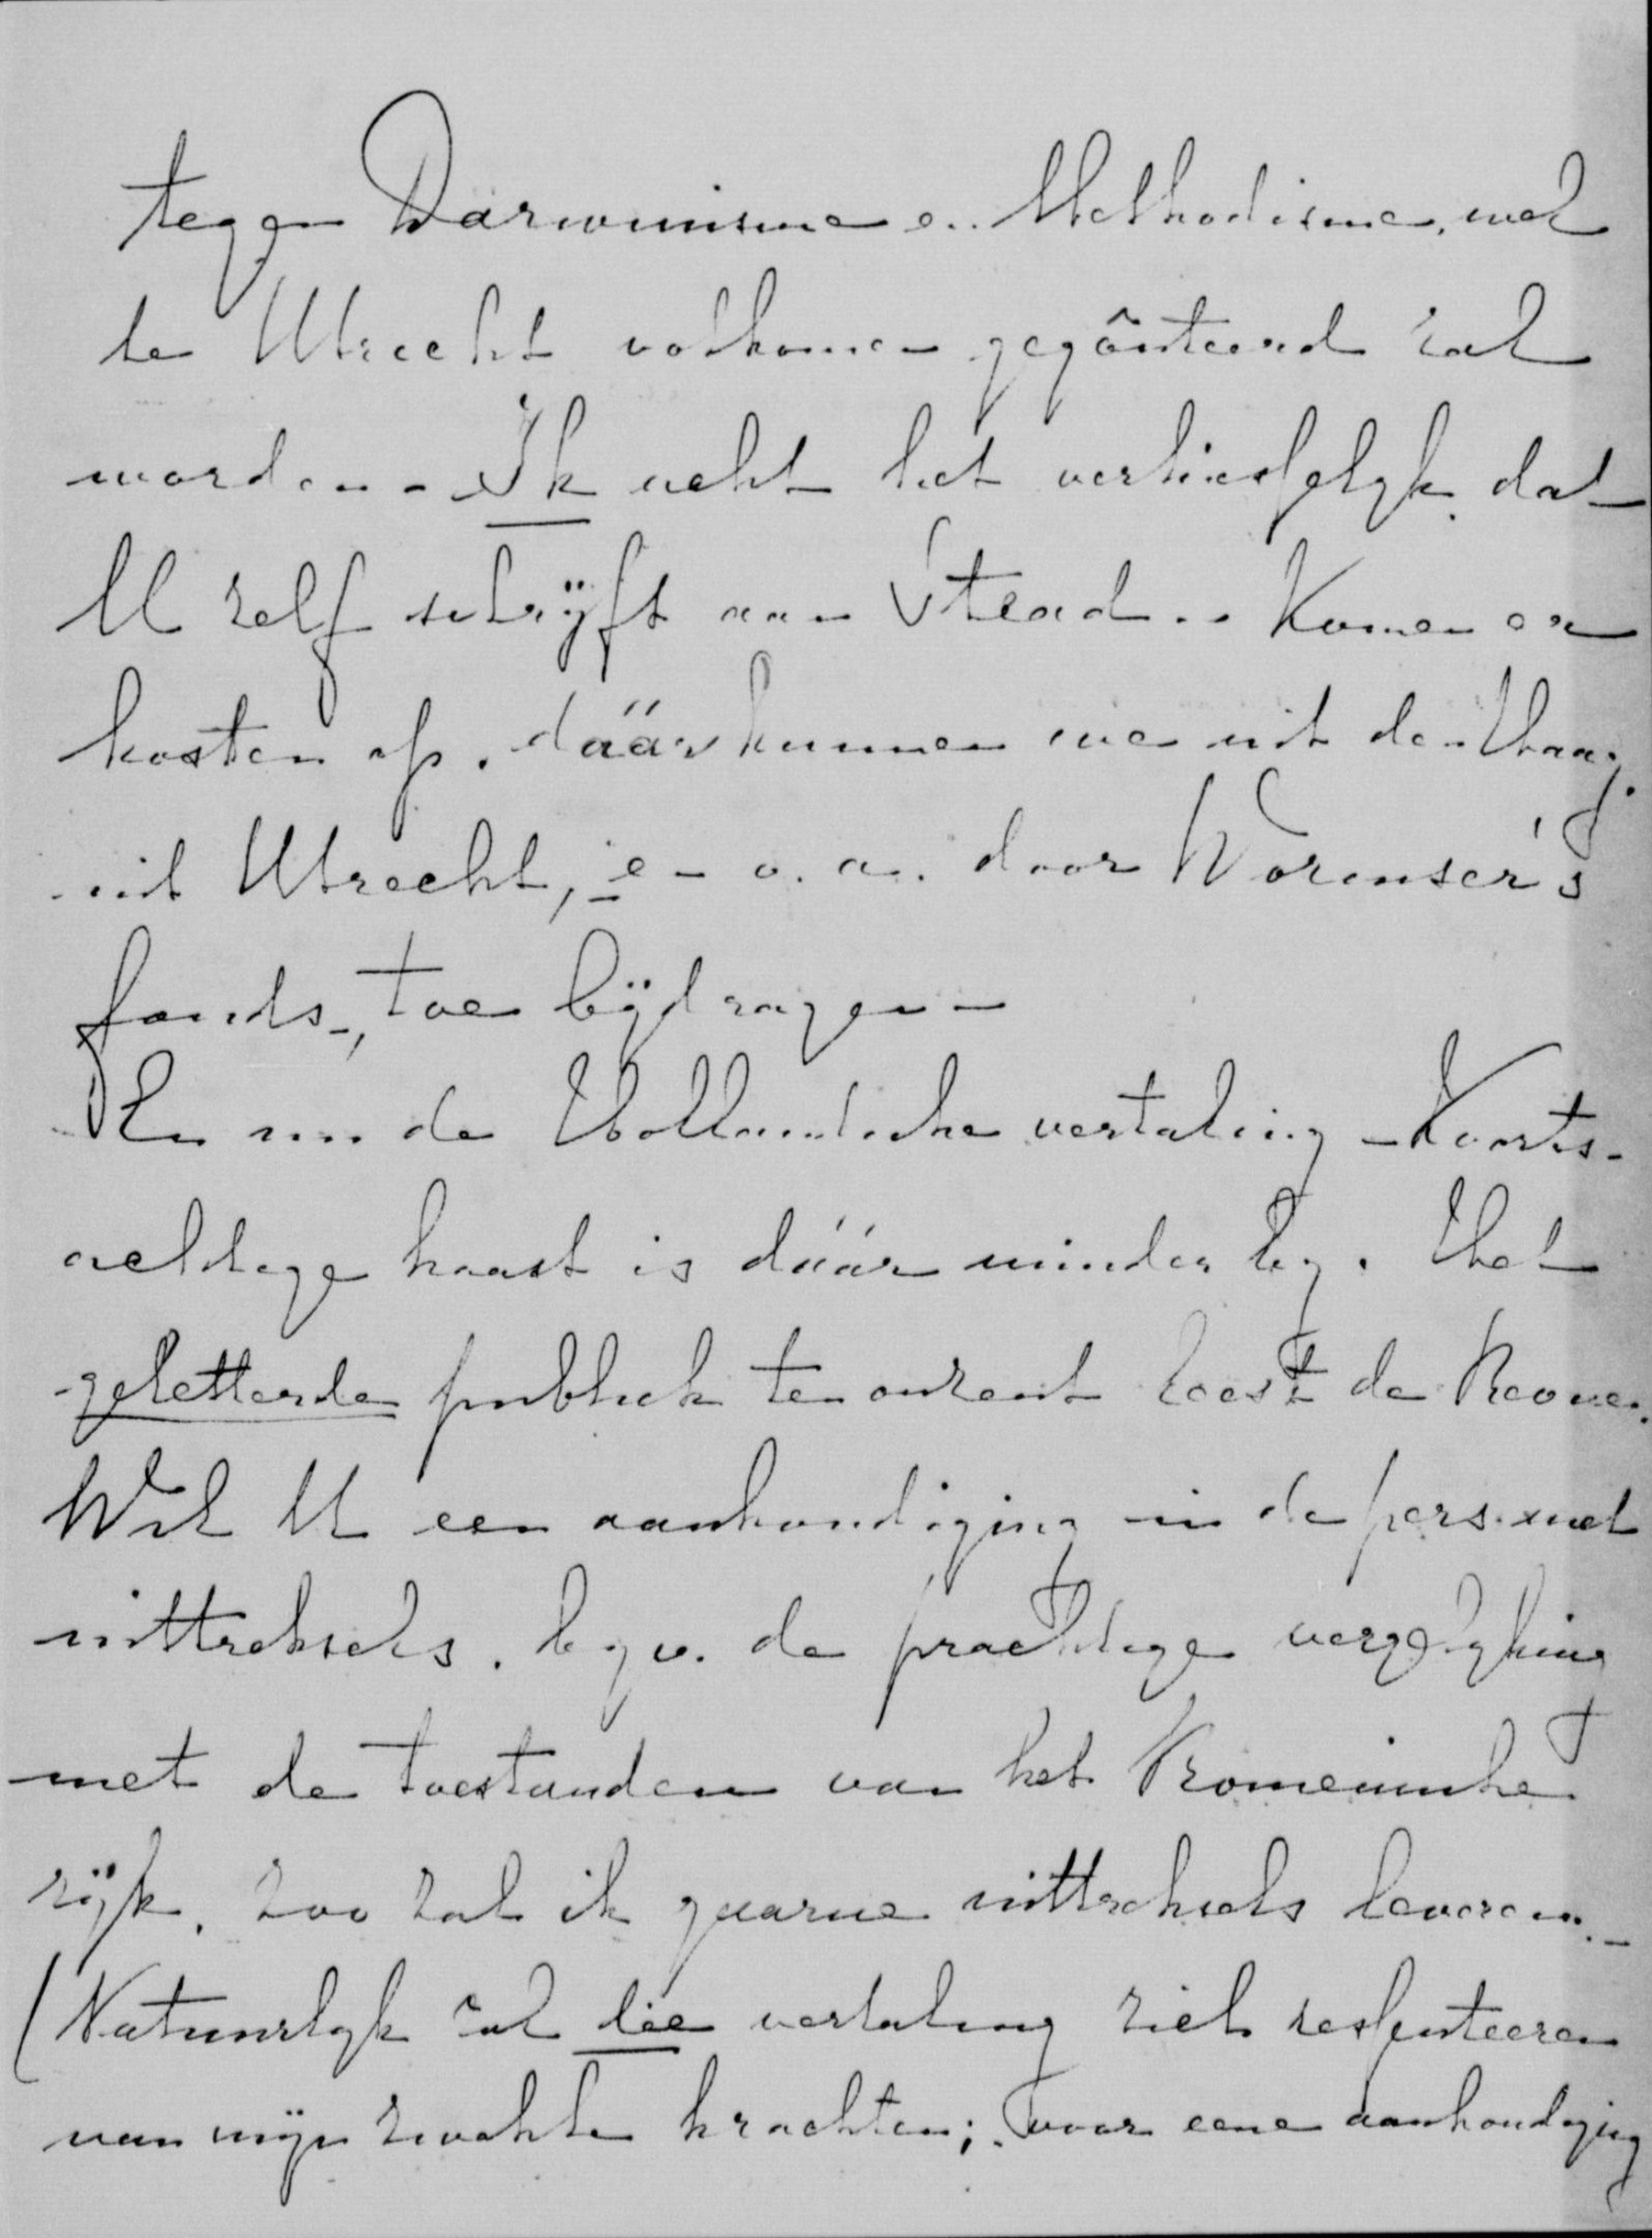 tegen Darwinisme en Methodisme, wel
te Utrecht volkomen gegoûteerd zal
worden. - Ik acht het verkieslyk, dat
U zelf schrijft aan Stead. - Komen er
kosten op, dáár kunnen we uit den Haag,
uit Utrecht, en o.a. door Wormser's
fonds, toe bijdragen -
En nu de Hollandsche vertaling - Koorts-
achtige haast is dáár minder by. Het
geletterde publiek ten onzent leest de Revue.
Wil U een aankondiging in de pers met
uittreksels, b.yv. de prachtige vergelyking
met de toestanden van het Romeinsche
rijk, zoo zal ik gaarne uittreksels leveren. -
(Natuurlyk zal die vertaling zich ressenteeren
van mijn zwakke krachten; voor eene aankondiging